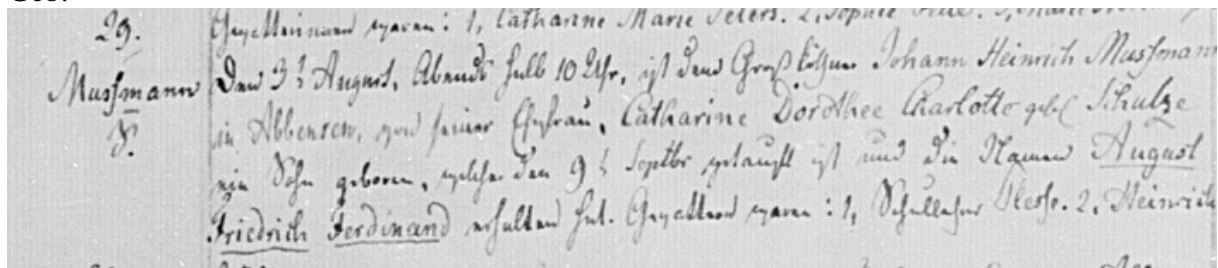 29. Gevatterinnen waren: 1, Catharine Marie Peters. 2, Sophie
Mussmann Den 3t August, Abends halb 10 Uhr, ist dem Großköthner Johann Heinrich Mussmann
in Abbensen, von seiner Ehefrau, Catharine Dorothee Charlotte gebl Schulze
ein Sohn geboren, welcher den 9t Septbr getauft ist und die Namen August
Friedrich Ferdinand erhalten hat. Gevattern waren: 1, Schullehrer Plesse. 2, Heinrich